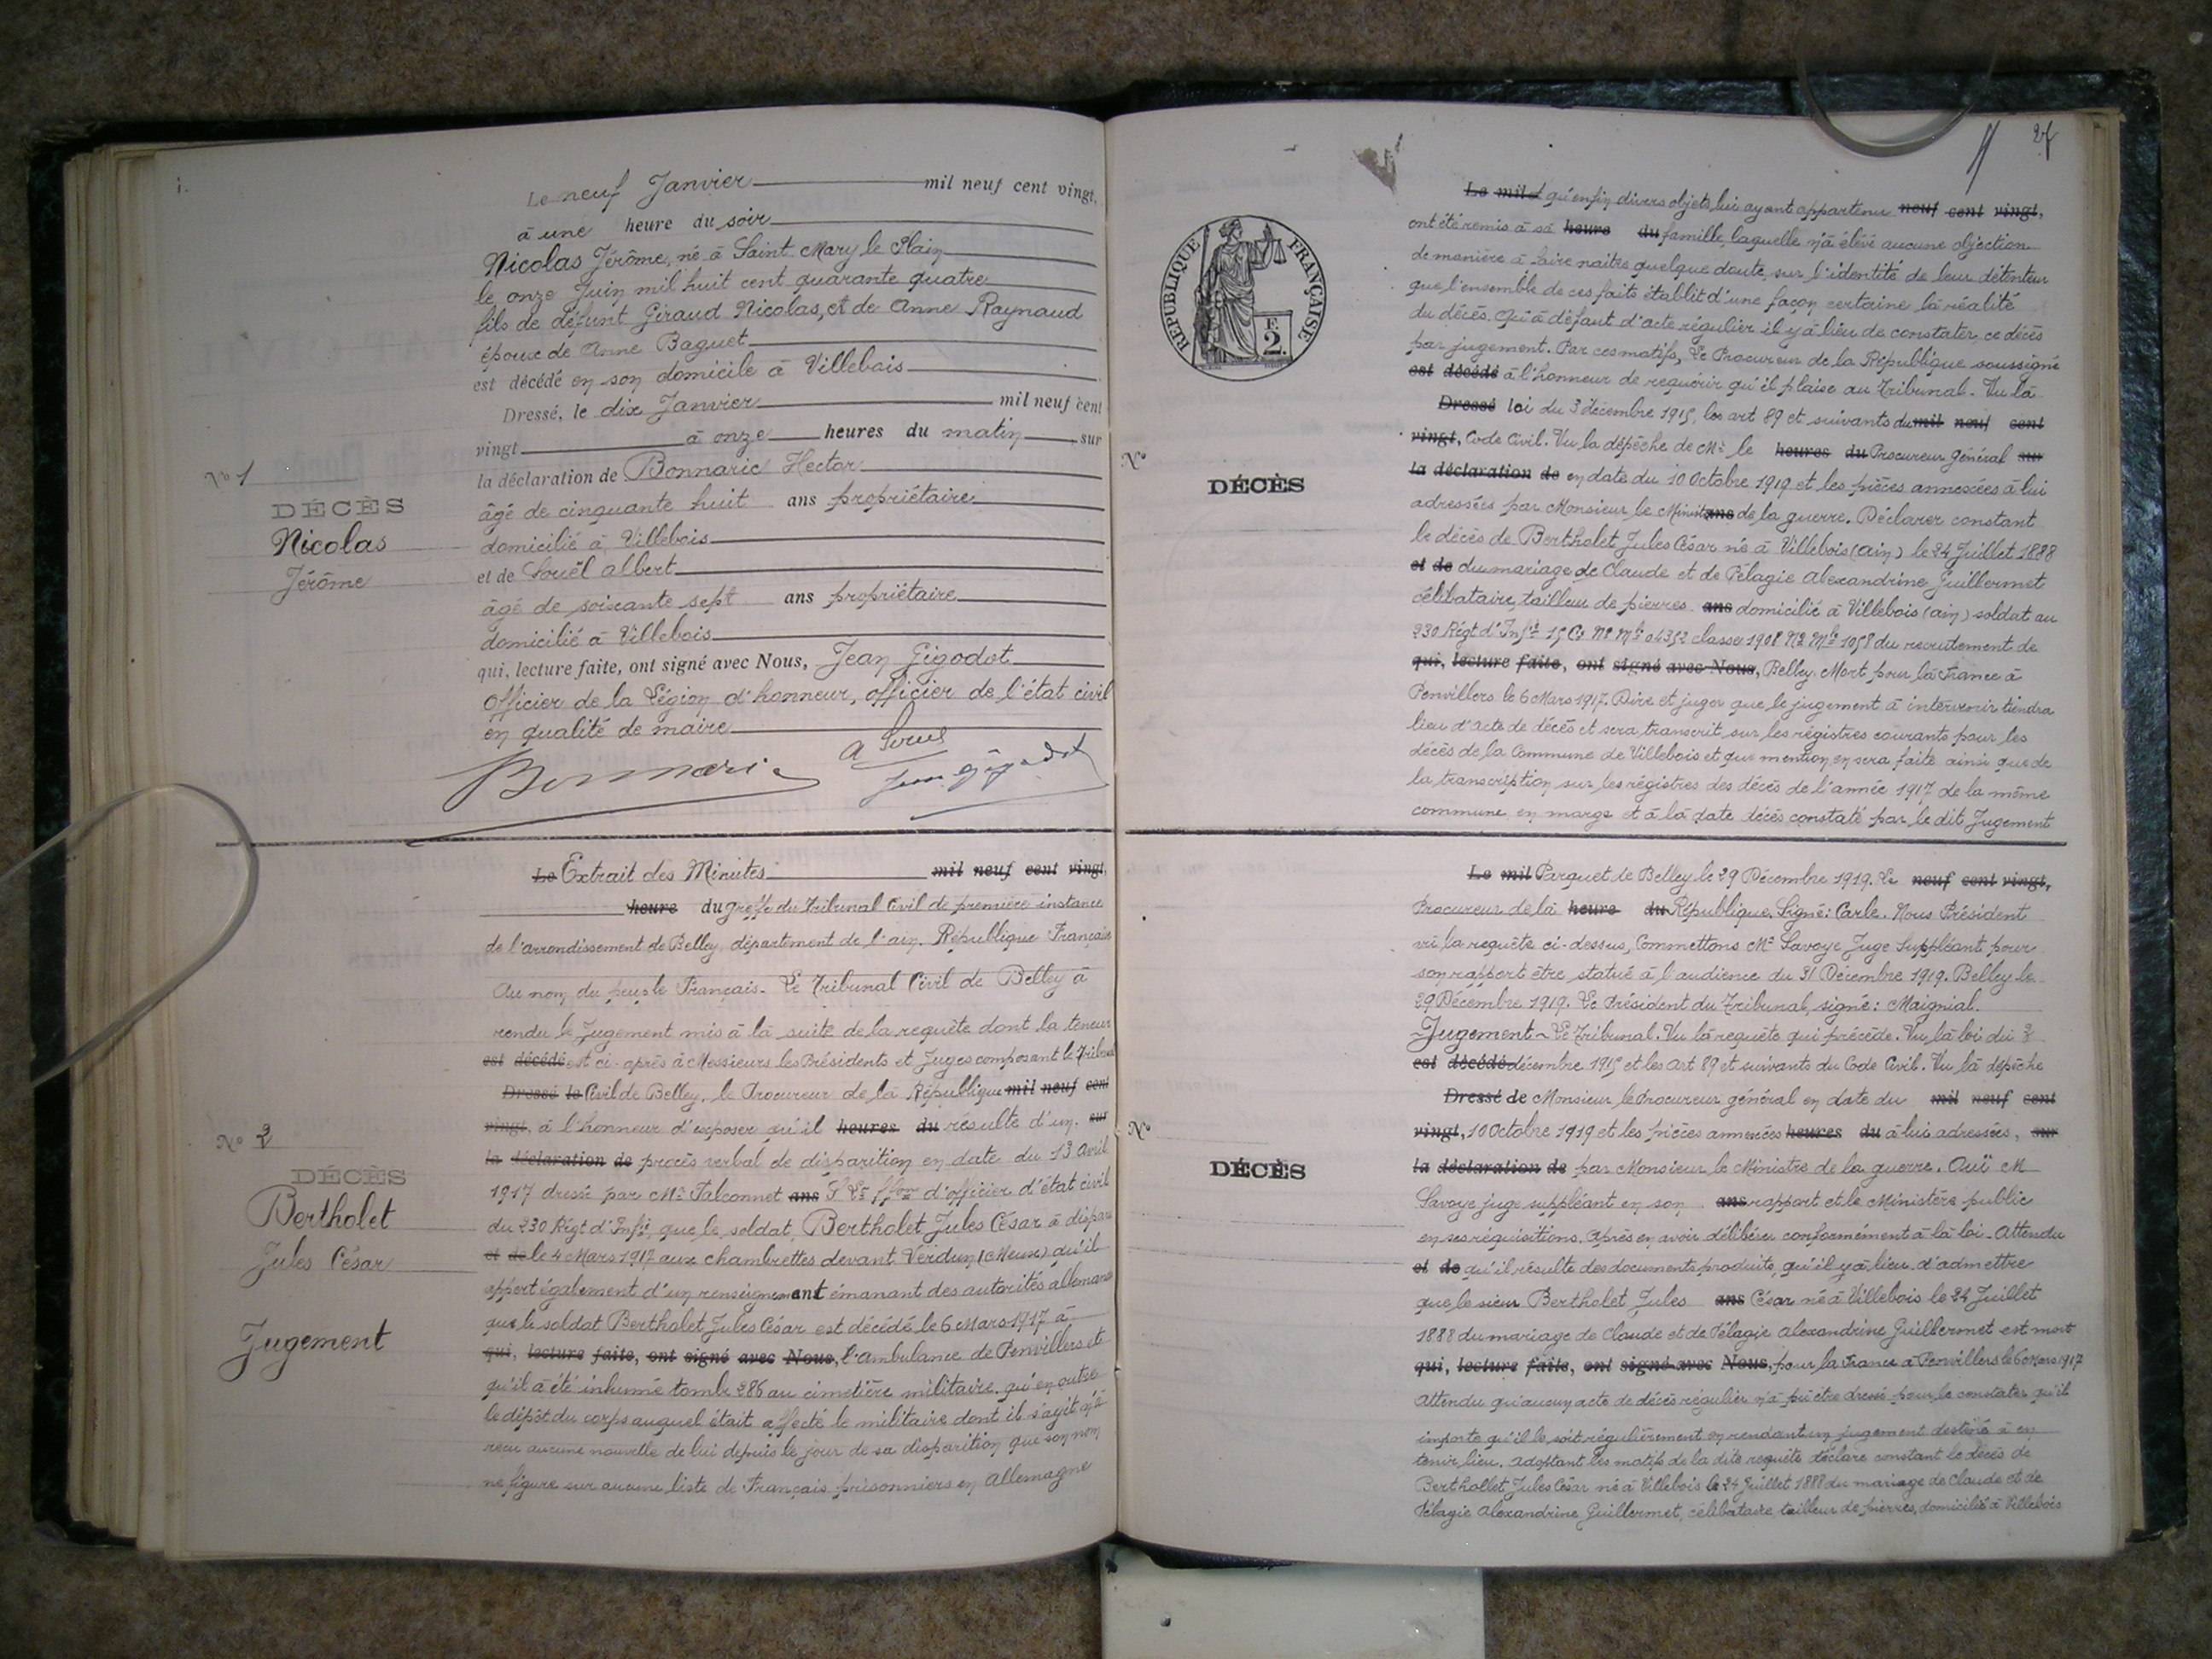 Le neuf Janvier mil neuf cent vingt,
à une heure du soir
Nicolas Jérôme, né à Saint Mary le Plain
le onze Juin mil huit cent quarante quatre
fils de défunt Giraud Nicolas, et de Anne Raynaud
époux de Anne Baguet
est décédé en son domicile à Villebois
Dressé, le dix Janvier mil neuf cent
vingt à onze heures du matin sur
la déclaration de Bonnaric Hector
âgé de cinquante huit ans propriétaire
domicilié à Villebois
et de Soruël Albert
âgé de soixante sept ans propriétaire
domicilié à Villebois
qui, lecture faite, ont signé avec Nous, Jean Gigodot
Officier de la Légion d'honneur, officier de l'état civil
en qualité de maire
No 1
DÉCÈS
Nicolas
Jérôme
Le Extrait des Minutes mil neuf cent vingt,
heure du greffe du Tribunal Civil de première instance
de l'arrondissement de Belley, département de l'ain. République Française
Au nom du peuple Français. Le Tribunal Civil de Belley à
rendu le Jugement mis à la suite de la requête dont la teneur
est décédé est ci-après à Messieurs les Présidents et Juges composant le Tribunal
Dressé le Civil de Belley, le Procureur de la République mil neuf cent
vingt, à l'honneur d'exposer qu'il heures du résulte d'un sur
la déclaration de procès verbal de disparition en date du 13 Avril
1917 dressé par Mr Falconnet ans S. Lt ffons d'officier d'état civil
du 230 Régt d'Infie que le soldat Bertholet Jules César à disparu
et de le 4 Mars 1917 aux chambrettes devant Verdun (Meuse) qu'il
appert également d'un renseignement émanant des autorités allemandes
que le soldat Bertholet Jules César est décédé le 6 Mars 1917 à
qui, lecture faite, ont signé avec Nous, l'ambulance de Penvillers et
qu'il à été inhumé tombe 286 au cimetière militaire. qu'en outre
le dépôt du corps auquel était affecté le militaire dont il s'agit n'à
reçu aucune nouvelle de lui depuis le jour de sa disparition que son nom
ne figure sur aucune liste de Français prisonniers en Allemagne
No 2
DÉCÈS
Bertholet
Jules César
Jugement
RÉPUBLIQUE FRANÇAISE
2
F.
Le mil et qu'enfin divers objets lui ayant appartenu neuf cent vingt,
ont été remis à sa heure du famille, laquelle n'à élevé aucune objection
de manière à faire naître quelque doute, sur l'identité de leur détenteur
que l'ensemble de ces faits établit d'une façon certaine la réalité
du décès. Qu'à défaut d'acte régulier il y à lieu de constater ce décès
par jugement. Par ces motifs, Le Procureur de la République soussigné
est décédé à l'honneur de requérir qu'il plaise au Tribunal. Vu la
Dressé loi du 3 décembre 1915, les art 89 et suivants du mil neuf cent
vingt, Code Civil. Vu la dépêche de Mr le heures du Procureur Général sur
la déclaration de en date du 10 Octobre 1919 et les pièces annexées à lui
adressées par Monsieur le Minist ans de la guerre. Déclarer constant
le décès de Bertholet Jules César né à Villebois (ain) le 24 Juillet 1888
et de du mariage de Claude et de Pélagie Alexandrine Guillermet
célibataire, tailleur de pierres ans domicilié à Villebois (ain) soldat au
230 Régt d'Infie 15 Cie No Mle 04352 classe 1908 No Mle 1058 du recrutement de
qui, lecture faite, ont signé avec Nous, Belley. Mort pour la France à
Penvillers le 6 Mars 1917. Dire et juger que le jugement à intervenir tiendra
lieu d'acte de décès et sera transcrit sur les régistres courants pour les
décès de la Commune de Villebois et que mention en sera faite ainsi que de
la transcription sur les régistres des décès de l'année 1917 de la même
commune en marge et à la date décès constaté par le dit Jugement
No
DÉCÈS
Le mil Parquet de Belley le 29 Décembre 1919. Le neuf cent vingt,
Procureur de la heure du République. Signé: Carle. Nous Président
vu la requête ci-dessus, Commettons Mr Savoye Juge Suppléant pour
son rapport être statué à l'audience du 31 Décembre 1919. Belley le
29 Décembre 1919. Le Président du Tribunal, signé: Maignial.
Jugement - Le Tribunal. Vu la requête qui précède. Vu la loi du 3
est décédé décembre 1915 et les Art 89 et suivants du Code Civil. Vu la dépêche
Dressé de Monsieur le Procureur général en date du mil neuf cent
vingt, 10 Octobre 1919 et les pièces annexées heures du à lui adressées, sur
la déclaration de par Monsieur le Ministre de la guerre. Ouï M
Savoye juge suppléant en son ans rapport et le Ministère public
en ses réquisitions. Après en avoir délibéré conformément à la loi. Attendu
et de qu'il résulte des documents produits, qu'il y à lieu d'admettre
que le sieur Bertholet Jules ans César né à Villebois le 24 Juillet
1888 du mariage de Claude et de Pélagie Alexandrine Guillermet est mort
qui, lecture faite, ont signé avec Nous, pour la France à Penvillers le 6 Mars 1917
Attendu qu'aucun acte de décès régulier n'à pu être dressé pour le constater qu'il
importe qu'il le soit régulièrement en rendant un jugement destiné à en
tenir lieu. Adoptant les motifs de la dite requête déclare constant le décès de
Berthollet Jules César né à Villebois le 24 Juillet 1888 du mariage de Claude et de
Pélagie Alexandrine Guillermet, célibataire, tailleur de pierres, domicilié à Villebois
No
DÉCÈS